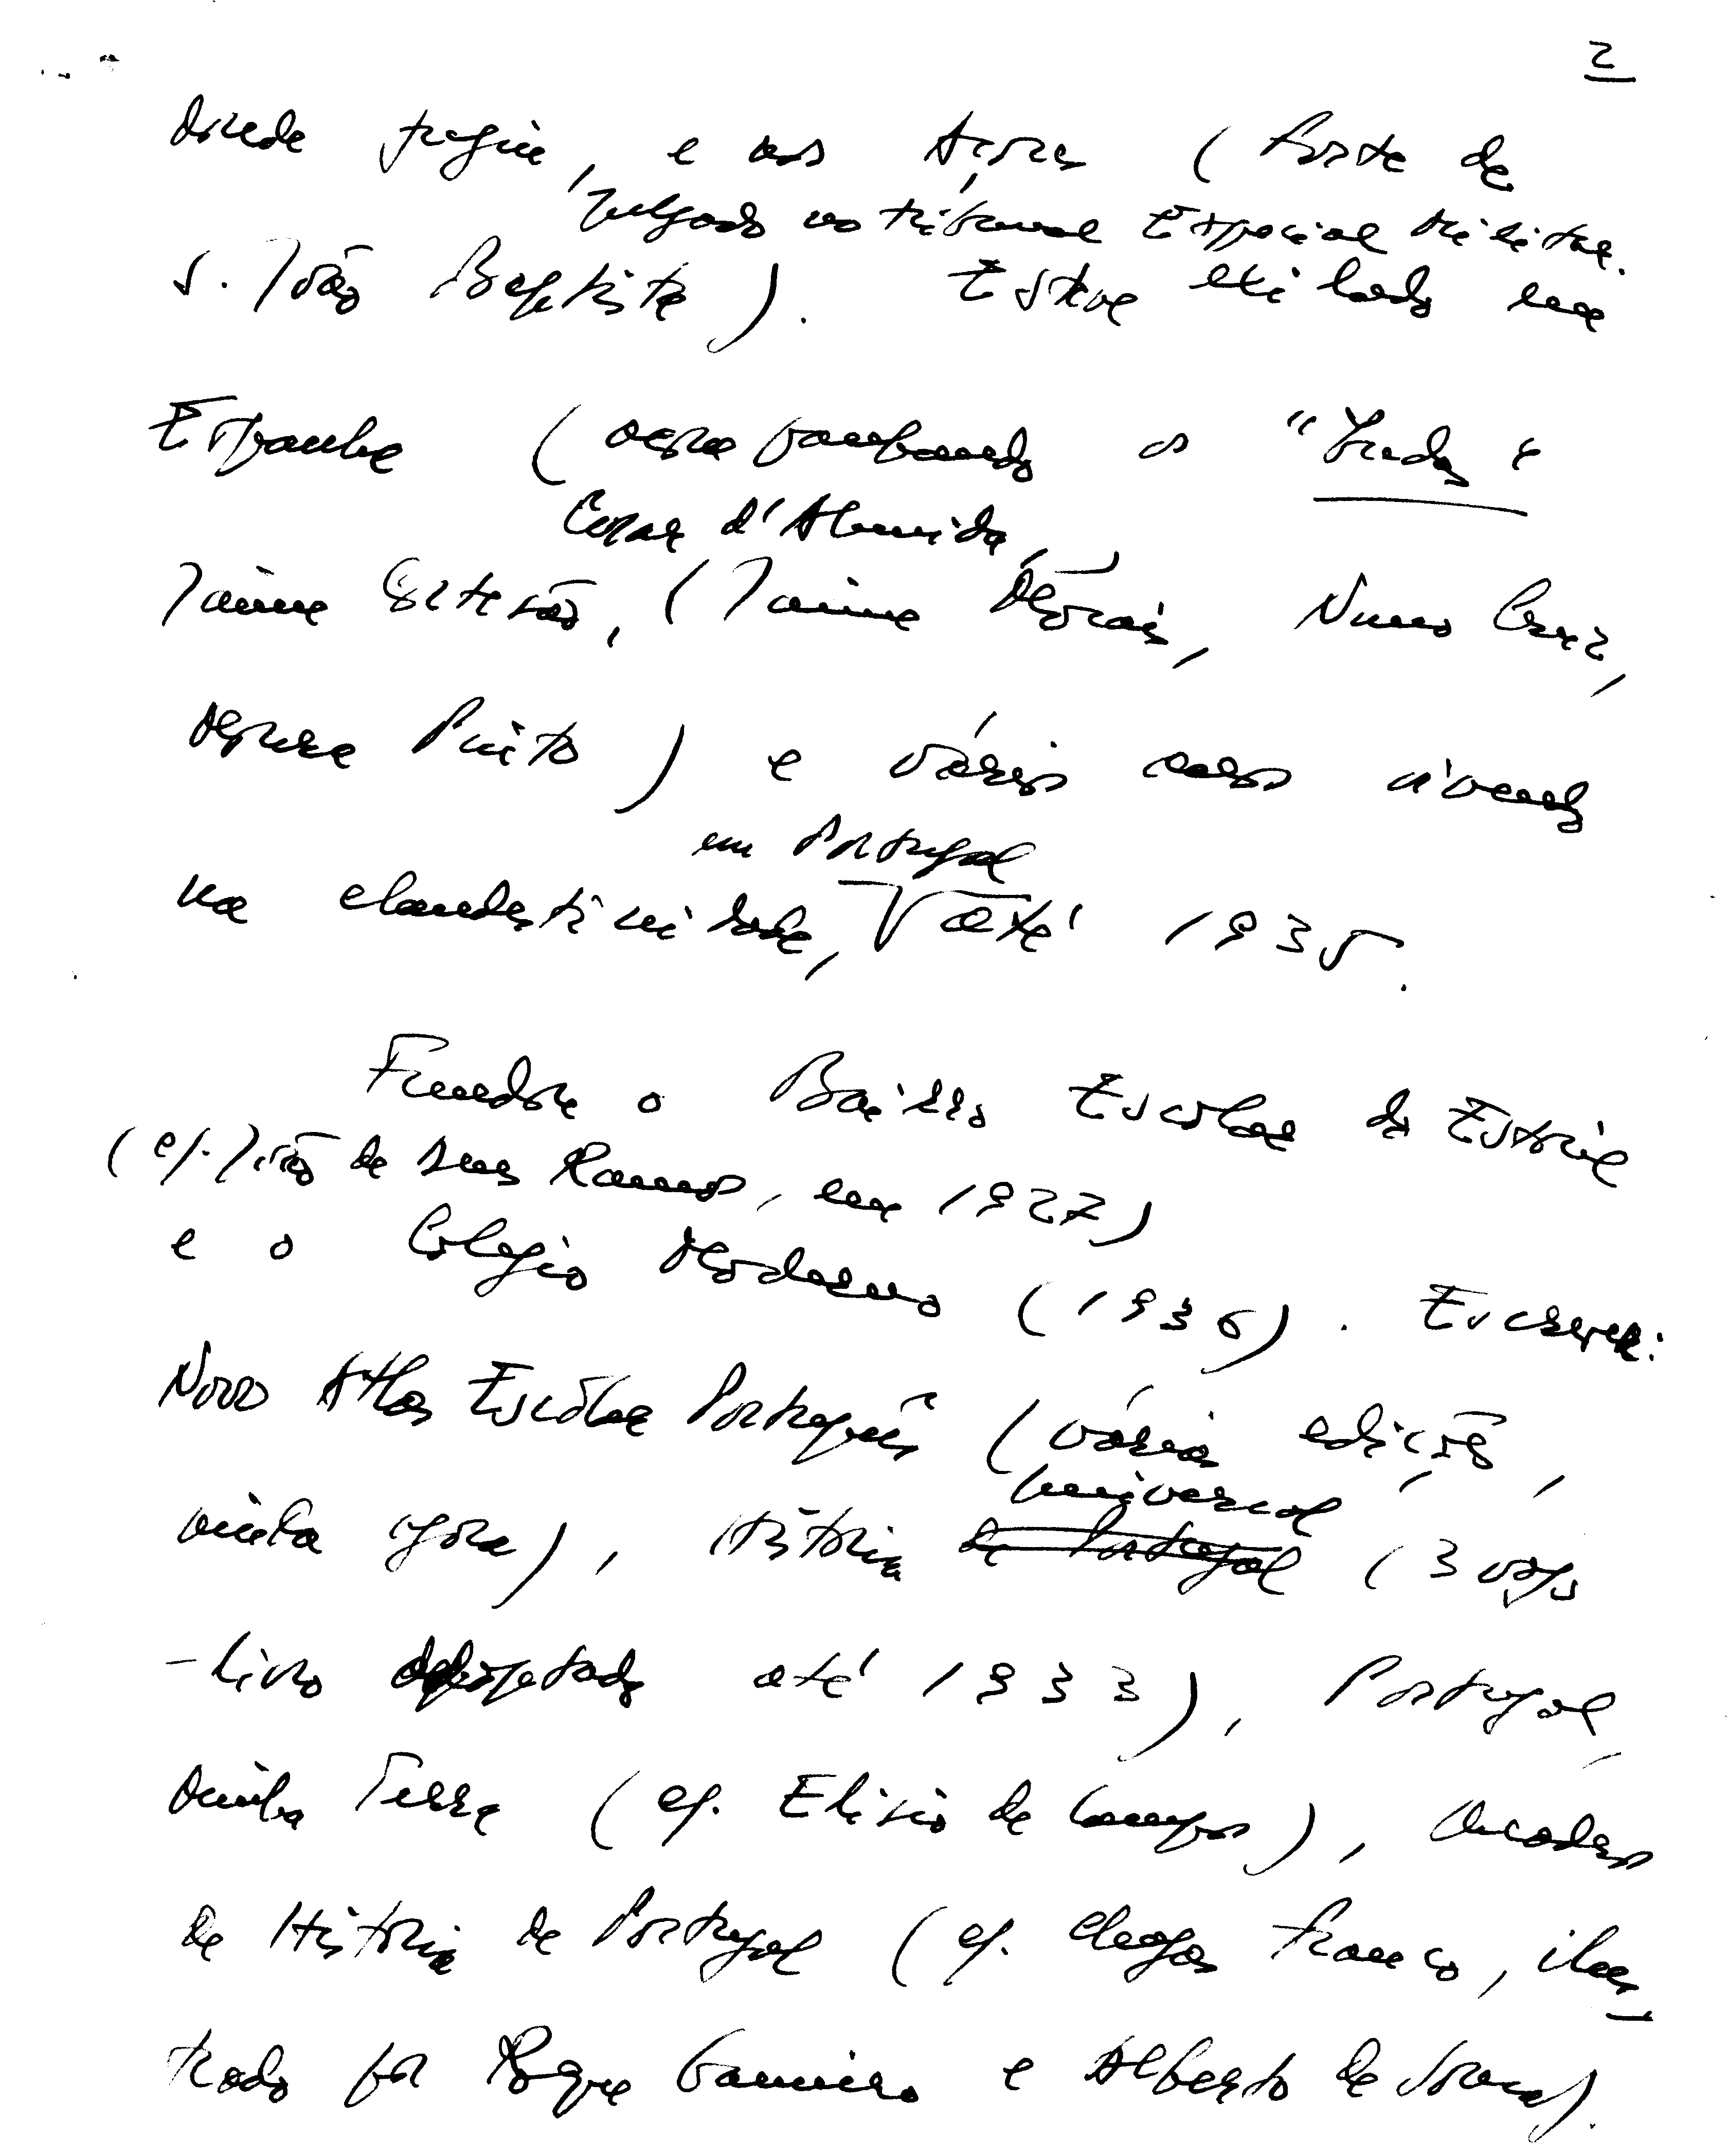 2
donde fugiu, e nos Açores (Forte de
julgado no tribunal Especial Militar.
S. João Baptista). Esteve exilado em
Espanha (acompanhando os "Budas"
Cezar d'Almeida,
Jaime Cortesão, (Jaime Morais, Nuno Cruz,
Moura Pinto) e vários anos viveu
em Portugal
na clandestinidade, até 1935.
Fundou o Bairro Escolar do Estoril
(c/. João de Deus Ramos, em 1927)
e o Colégio Moderno (1936). Escreveu:
Novo Atlas Escolar Português (várias edições,
ainda agora), História
universal
de Portugal (3 vols
- livro adoptado até 1933), Portugal,
minha Terra (c/. Elisio de Campos), Quadros
de História de Portugal (c/. Chagas Franco, ilus
trado por Roque Gameiro e Alberto de Sousa).